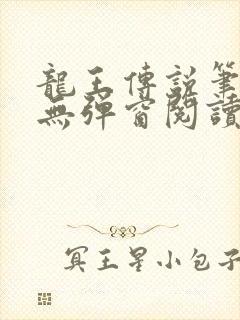 龍王傳說筆
無彈窗閱讀
冥王星小包子